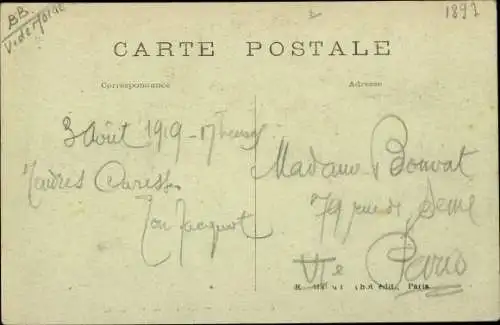 BB
1897
CARTE POSTALE
Correspondance
Adresse
3 Août 1919 - 17 heures
Tendres Caresses
Ton Jacquot
Madame Bonvat
79 rue de Seine
VIe Paris
édit., Paris